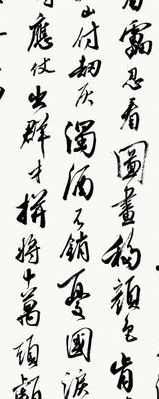 雷忍看圖畫移顏色肯
山付劫灰濁酒不銷憂國淚
應仗出群才拼將十萬頭顱